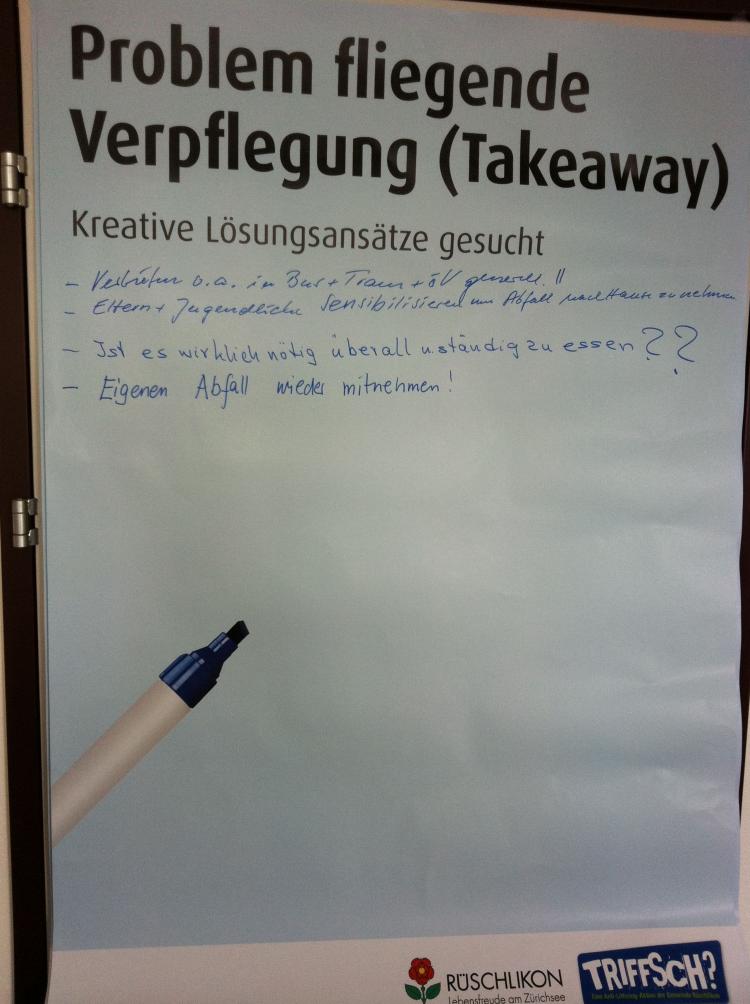 Problem fliegende
Verpflegung (Takeaway)
Kreative Lösungsansätze gesucht
- in Bus + Tram + öV generell !!
- Eltern + Jugendliche Sensibilisieren um Abfall nach Hause zu nehmen
- Ist es wirklich nötig überall u. ständig zu essen ??
- Eigenen Abfall wieder mitnehmen!
RÜSCHLIKON
Lebensfreude am Zürichsee
TRIFFSCH?
Eine Anti-Littering-Aktion der Gemeinde Rüschlikon